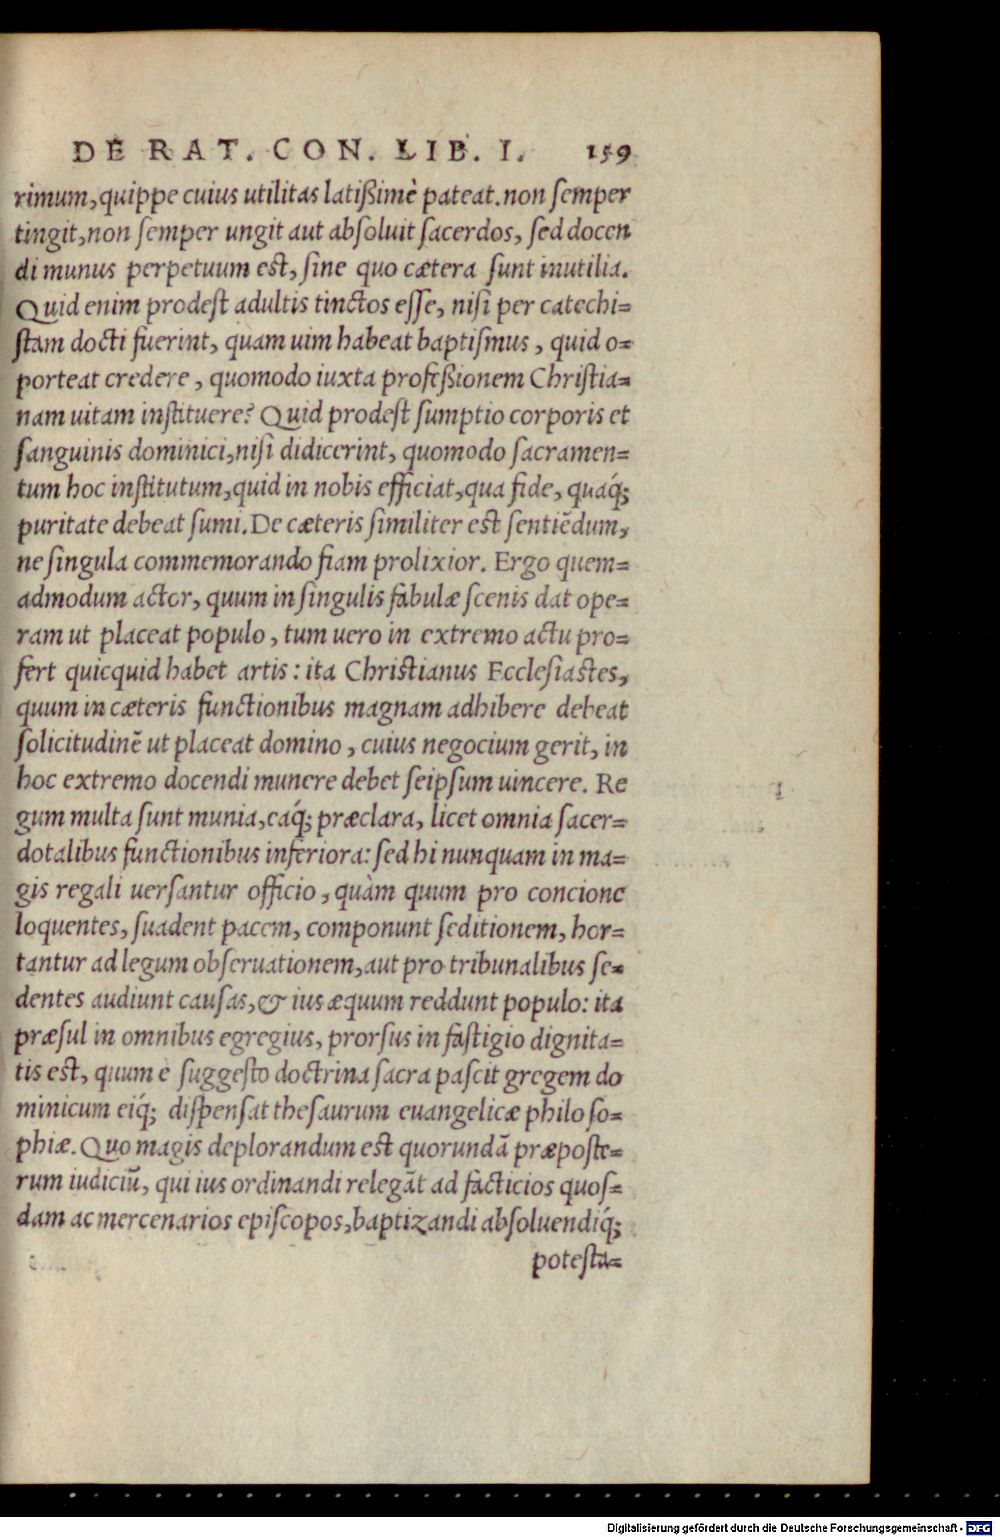 DE RAT. CON. LIB. I. 159
rimum, quippe cuius utilitas latißimè pateat. non semper
tingit, non semper ungit aut absoluit sacerdos, sed docen
di munus perpetuum est, sine quo cætera sunt inutilia.
Quid enim prodest adultis tinctos esse, nisi per catechi=
stam docti fuerint, quam uim habeat baptismus, quid o=
porteat credere, quomodo iuxta profeßionem Christia=
nam uitam instituere? Quid prodest sumptio corporis et
sanguinis dominici, nisi didicerint, quomodo sacramen=
tum hoc institutum, quid in nobis efficiat, qua fide, quaq́;
puritate debeat sumi. De cæteris similiter est sentiēdum,
ne singula commemorando fiam prolixior. Ergo quem=
admodum actor, quum in singulis fabulæ scenis dat ope=
ram ut placeat populo, tum uero in extremo actu pro=
fert quicquid habet artis: ita Christianus Ecclesiastes,
quum in cæteris functionibus magnam adhibere debeat
solicitudinē ut placeat domino, cuius negocium gerit, in
hoc extremo docendi munere debet seipsum uincere. Re
gum multa sunt munia, eaq́; præclara, licet omnia sacer=
dotalibus functionibus inferiora: sed hi nunquam in ma=
gis regali uersantur officio, quàm quum pro concione
loquentes, suadent pacem, componunt seditionem, hor=
tantur ad legum obseruationem, aut pro tribunalibus se=
dentes audiunt causas, & ius æquum reddunt populo: ita
præsul in omnibus egregius, prorsus in fastigio dignita=
tis est, quum è suggesto doctrina sacra pascit gregem do
minicum eiq́; dispensat thesaurum euangelicæ philoso=
phiæ. Quo magis deplorandum est quorundā præposte=
rum iudiciū, qui ius ordinandi relegāt ad facticios quos=
dam ac mercenarios episcopos, baptizandi absoluendiq́;
potesta=
Digitalisierung gefördert durch die Deutsche Forschungsgemeinschaft - DFG